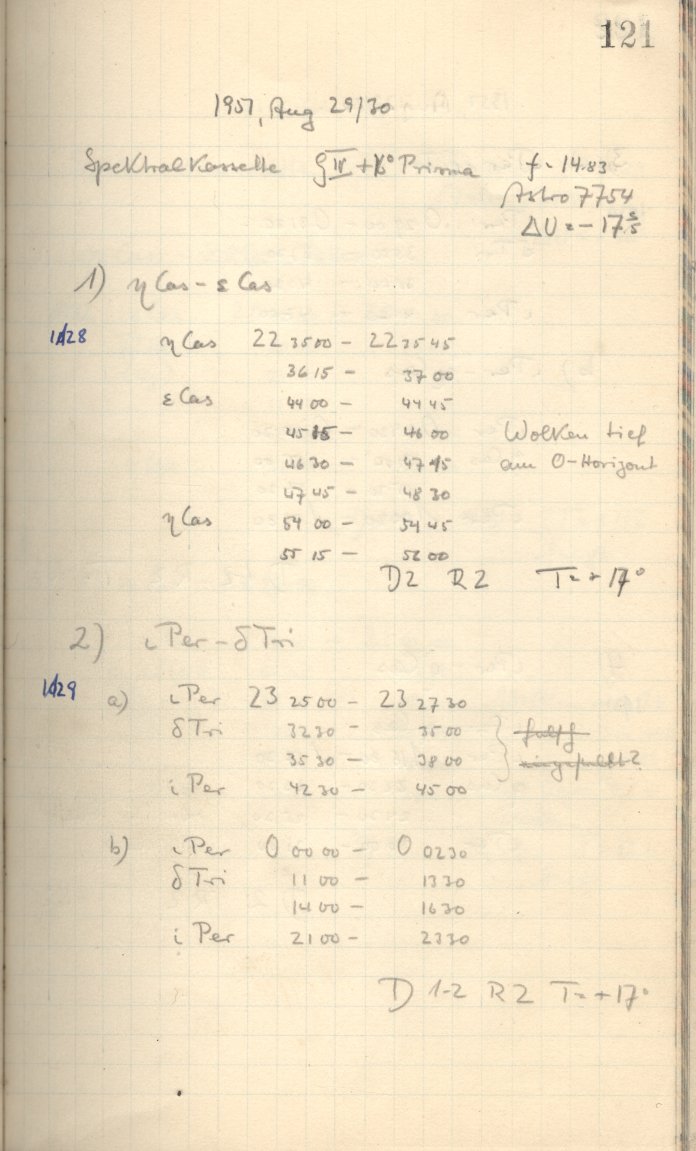 121
1951, Aug 29/30
Spektralkassette g IV + K° Prisma f = 14.83
Astro 7754
ΔU = - 17 s 5
1) η Cas - ε Cas
1428 η Cas 22 35 00 - 22 35 45
36 15 - 37 00
ε Cas 44 00 - 44 45
45 15 - 46 00 Wolken tief
46 30 - 47 15 am O-Horizont
47 45 - 48 30
η Cas 54 00 - 54 45
55 15 - 56 00
D2 R2 T = + 17°
2) ι Per - δ Tri
1429 a) ι Per 23 25 00 - 23 27 30
δ Tri 32 30 - 35 00 falsch
35 30 - 38 00 eingestellt?
ι Per 42 30 - 45 00
b) ι Per 0 00 00 - 0 02 30
δ Tri 11 00 - 13 30
14 00 - 16 30
ι Per 21 00 - 23 30
D 1-2 R2 T = + 17°